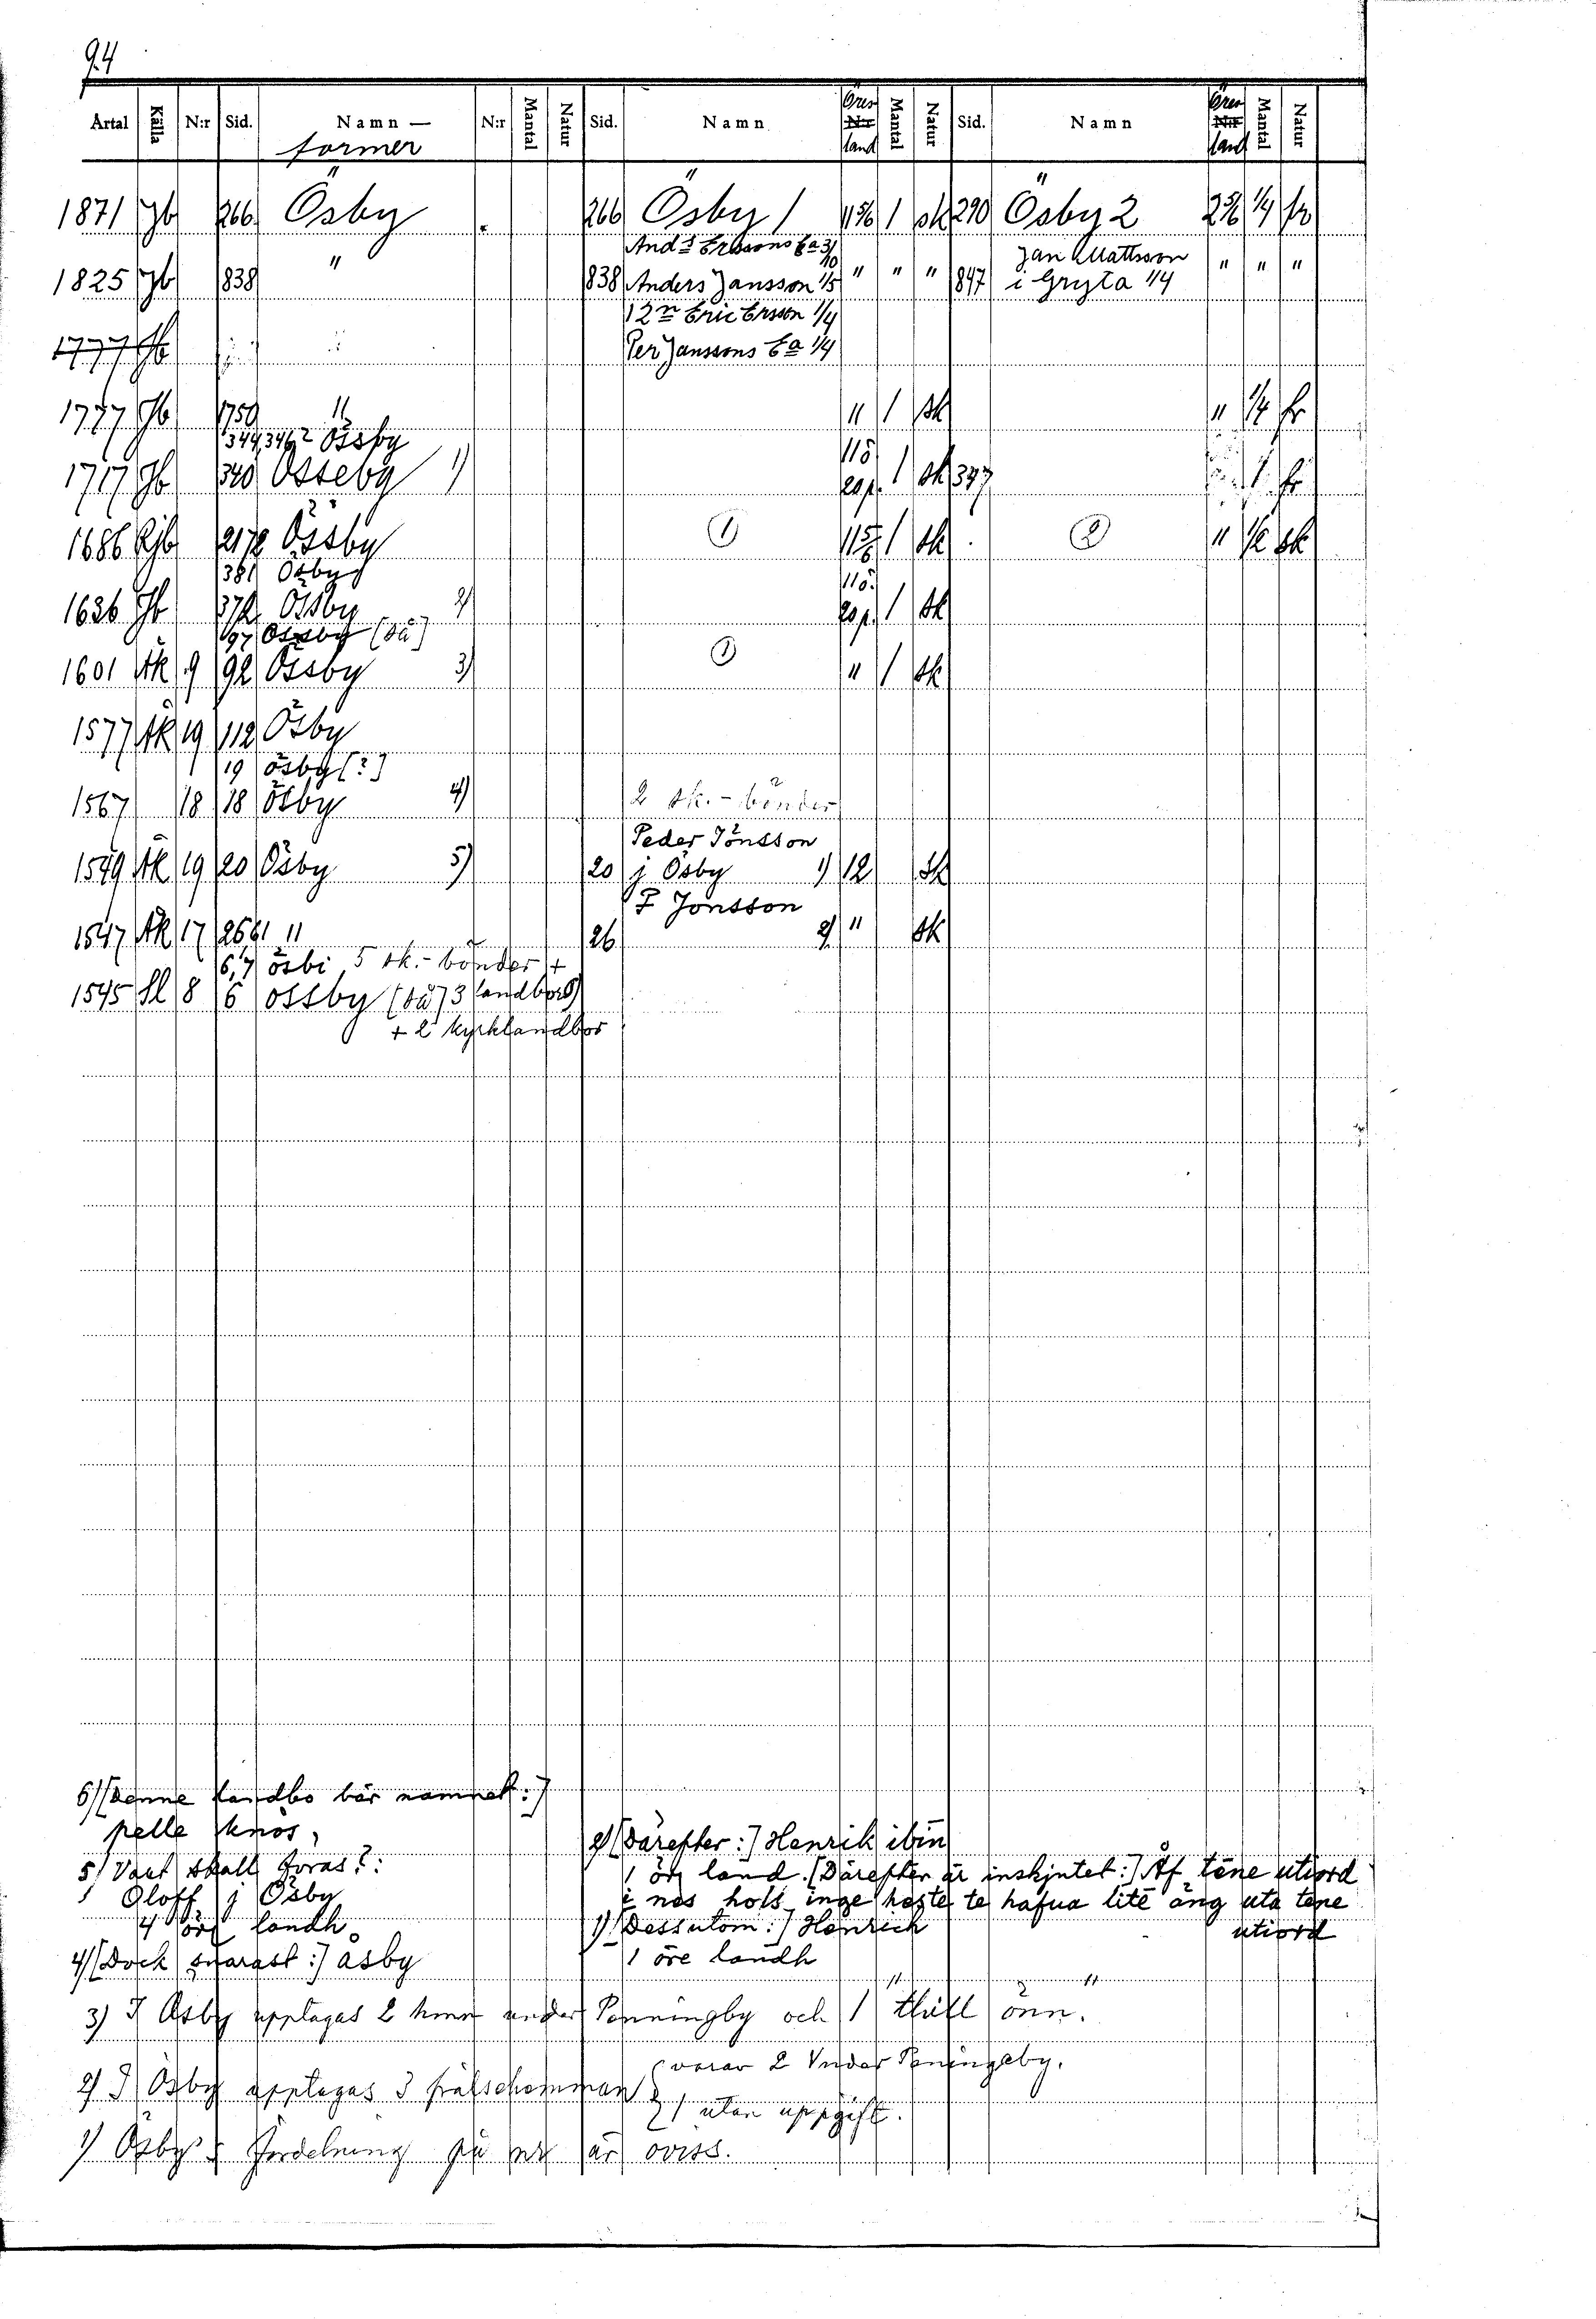 94
Årtal Källa N:r Sid. Namn — former N:r Mantal Natur Sid. Namn Öres land Mantal Natur Sid. Namn Öres land Mantal Natur
1871 Jb 266 Ösby 266 Ösby 1 1 sk 290 Ösby 2 1/4 fr
And:s Erssons Ea 3/10
Jan Mattsson
1825 Jb 838 " 838 Anders Jansson 1/5 " " " 847 i Gryta 1/4 " " "
12n Eric Ersson 1/4
1777 Jb Per Janssons Ea 1/4
1777 Jb 1750 " " 1 sk " 1/4 fr
344, 346 Össby 115
1717 Jb 340 Össeby 1) 20p. 1 sk 347 fr
1686 Jb 217 Össby 1 1 sk 2 " 1/2 sk
381 Ösby 115
1636 Jb 372 Össby 2) 20p. 1 sk
97 (så)
1601 åk 9 92 Össby 3) 1 " 1 sk
1577 åk 19 112 Ösby
19 ösby [?]
1567 18 18 Ösby 4) 2 sk.-bönder
Peder Jönsson
1549 åk 19 20 Ösby 5) 20 j Ösby 1) 12 sk
P Jönsson
1547 åk 17 26 " 26 2) " sk
6,7 ösbi 5 sk.-bönder +
1545 Sl 8 6 össby (så) 3 landbor 6)
+ 2 kyrklandbor
6) [Denne landbo bär namnet:]
pelle knös,
5) Vart skall föras?:
Oloff j Ösby
4 öre landh
4) [Dock snarast:] åsby
2) [Därefter:] Henrik ibin
1 öre land. [Därefter är inskjutet:] Åf tene utiord
i nes hols inge heste te hafua lite äng uta tene
utiord
1) [Dessutom:] Henrich
1 öre landh
3) I Ösby upptagas 2 hmn under Penningby och 1 thill önn.
2) I Ösby upptagas 3 frälsehemman { varav 2 Under Peningeby.
1 utan uppgift.
1) Ösby's fördelning på nr är oviss.